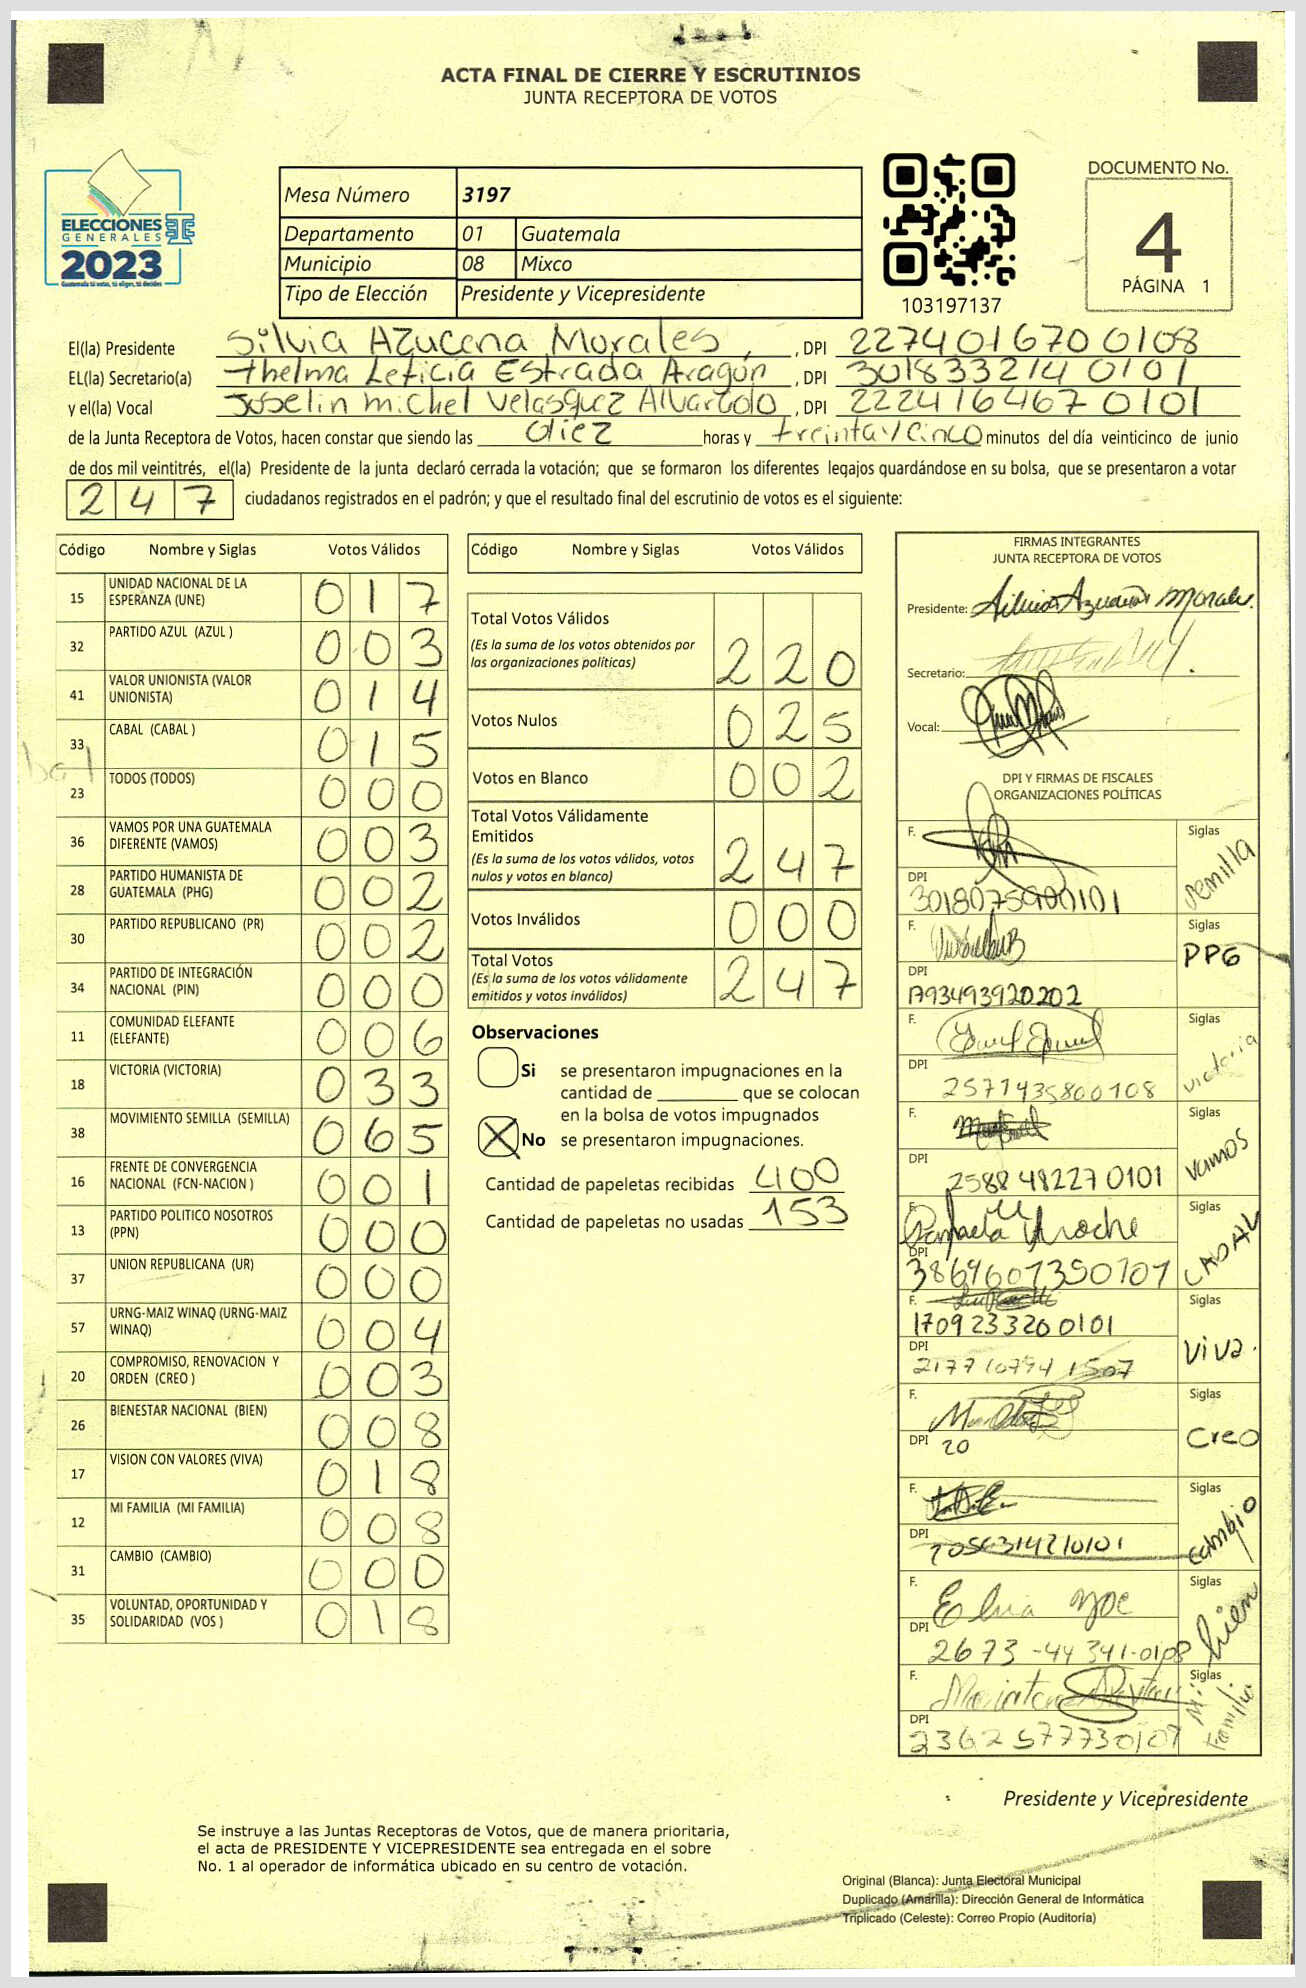 ACTA FINAL DE CIERRE Y ESCRUTINIOS
JUNTA RECEPTORA DE VOTOS
ELECCIONES
GENERALES
2023
Guatemala tú votas, tú eliges, tú decides
Mesa Número 3197
Departamento 01 Guatemala
Municipio 08 Mixco
Tipo de Elección Presidente y Vicepresidente
103197137
DOCUMENTO No.
4
PÁGINA 1
El(la) Presidente Silvia Azucena Morales, , DPI 2274016700108
EL(la) Secretario(a) Thelma Leticia Estrada Aragón , DPI 3018332140101
y el(la) Vocal Joselin michel Velasquez Alvarado , DPI 2224164670101
de la Junta Receptora de Votos, hacen constar que siendo las diez horas y treinta y cinco minutos del día veinticinco de junio
de dos mil veintitrés, el(la) Presidente de la junta declaró cerrada la votación; que se formaron los diferentes legajos guardándose en su bolsa, que se presentaron a votar
247 ciudadanos registrados en el padrón; y que el resultado final del escrutinio de votos es el siguiente:
Código Nombre y Siglas Votos Válidos
15 UNIDAD NACIONAL DE LA ESPERANZA (UNE) 017
32 PARTIDO AZUL (AZUL ) 003
41 VALOR UNIONISTA (VALOR UNIONISTA) 014
33 CABAL (CABAL ) 015
23 TODOS (TODOS) 000
36 VAMOS POR UNA GUATEMALA DIFERENTE (VAMOS) 003
28 PARTIDO HUMANISTA DE GUATEMALA (PHG) 002
30 PARTIDO REPUBLICANO (PR) 002
34 PARTIDO DE INTEGRACIÓN NACIONAL (PIN) 000
11 COMUNIDAD ELEFANTE (ELEFANTE) 006
18 VICTORIA (VICTORIA) 033
38 MOVIMIENTO SEMILLA (SEMILLA) 065
16 FRENTE DE CONVERGENCIA NACIONAL (FCN-NACION ) 001
13 PARTIDO POLITICO NOSOTROS (PPN) 000
37 UNION REPUBLICANA (UR) 000
57 URNG-MAIZ WINAQ (URNG-MAIZ WINAQ) 004
20 COMPROMISO, RENOVACION Y ORDEN (CREO ) 003
26 BIENESTAR NACIONAL (BIEN) 008
17 VISION CON VALORES (VIVA) 018
12 MI FAMILIA (MI FAMILIA) 008
31 CAMBIO (CAMBIO) 000
35 VOLUNTAD, OPORTUNIDAD Y SOLIDARIDAD (VOS ) 018
Código Nombre y Siglas Votos Válidos
Total Votos Válidos 220
(Es la suma de los votos obtenidos por
las organizaciones políticas)
Votos Nulos 025
Votos en Blanco 002
Total Votos Válidamente
Emitidos 247
(Es la suma de los votos válidos, votos
nulos y votos en blanco)
Votos Inválidos 000
Total Votos 247
(Es la suma de los votos válidamente
emitidos y votos inválidos)
Observaciones
Si se presentaron impugnaciones en la
cantidad de ________ que se colocan
en la bolsa de votos impugnados
X No se presentaron impugnaciones.
Cantidad de papeletas recibidas 400
Cantidad de papeletas no usadas 153
FIRMAS INTEGRANTES
JUNTA RECEPTORA DE VOTOS
Presidente: Silvia Azucena Morales
Secretario:
Vocal:
DPI Y FIRMAS DE FISCALES
ORGANIZACIONES POLÍTICAS
F. Siglas Semilla
DPI
F. Siglas PPG
DPI A93493920202
F. Siglas victoria
DPI 2571435800108
F. Siglas Vamos
DPI 2588482270101
F. Siglas CABAL
DPI 3869607350101
F. Siglas Viva.
1709233200101
DPI
F. Siglas Creo
DPI 20
F. Siglas cambio
DPI
F. Elvia Siglas bien
DPI 2673-44341-0108
F. Siglas Mi Familia
DPI 2362577730107
Presidente y Vicepresidente
Se instruye a las Juntas Receptoras de Votos, que de manera prioritaria,
el acta de PRESIDENTE Y VICEPRESIDENTE sea entregada en el sobre
No. 1 al operador de informática ubicado en su centro de votación.
Original (Blanca): Junta Electoral Municipal
Duplicado (Amarilla): Dirección General de Informática
Triplicado (Celeste): Correo Propio (Auditoría)